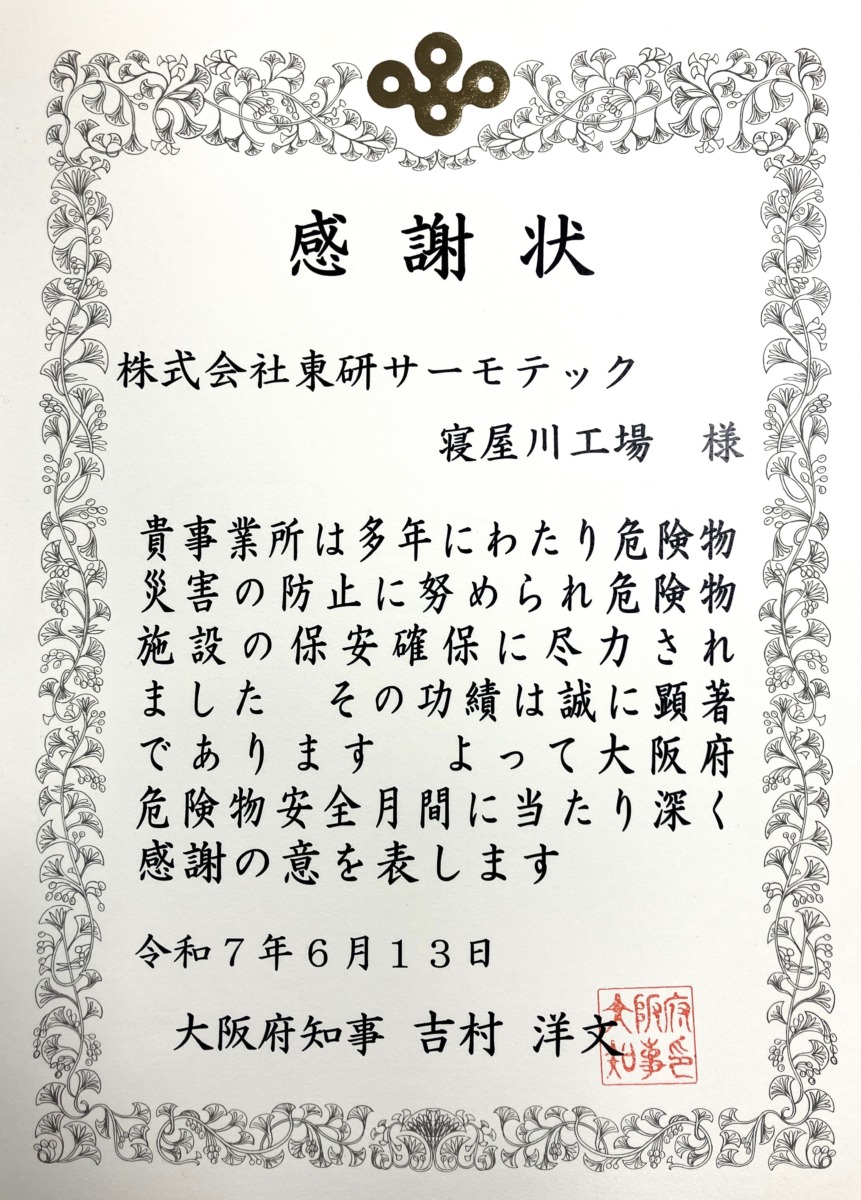 感謝状
株式会社東研サーモテック
寝屋川工場 様
貴事業所は多年にわたり危険物
災害の防止に努められ危険物
施設の保安確保に尽力され
ました その功績は誠に顕著
であります よって大阪府
危険物安全月間に当たり深く
感謝の意を表します
令和7年6月13日
大阪府知事 吉村 洋文
大阪府
知事印